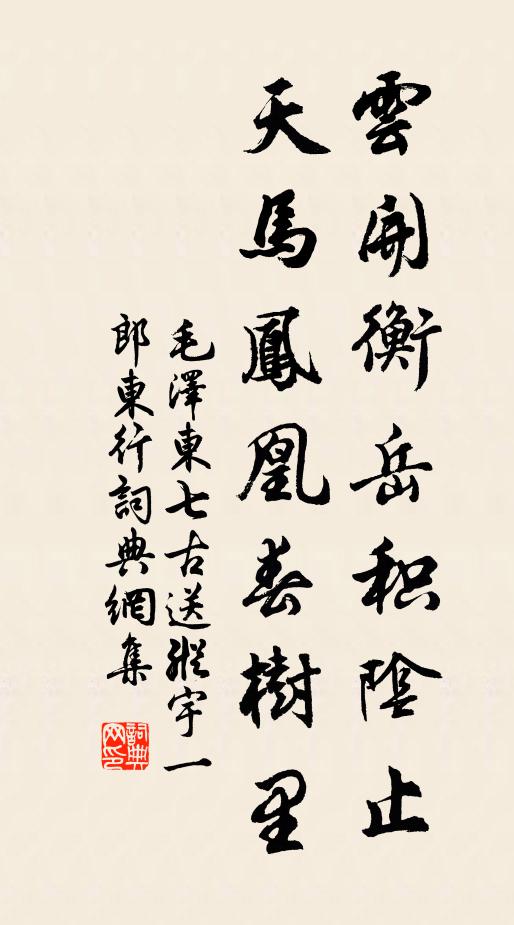 雲開衡岳积陰止
天馬鳳凰春樹里
毛澤東七古送縱宇一
郎東行詞典網集
詞典网印